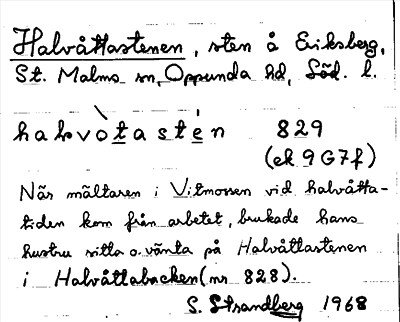 Halvåttastenen, sten å Eriksberg,
St. Malms sn, Oppunda hd, Söd. l.
halvòtastén 829
(ek 9G7f)
När mältaren i Vitmossen vid halvåtta-
tiden kom från arbetet, brukade hans
hustru sitta o. vänta på Halvåttastenen
i Halvåttabacken (nr 828).
S. Strandberg 1968